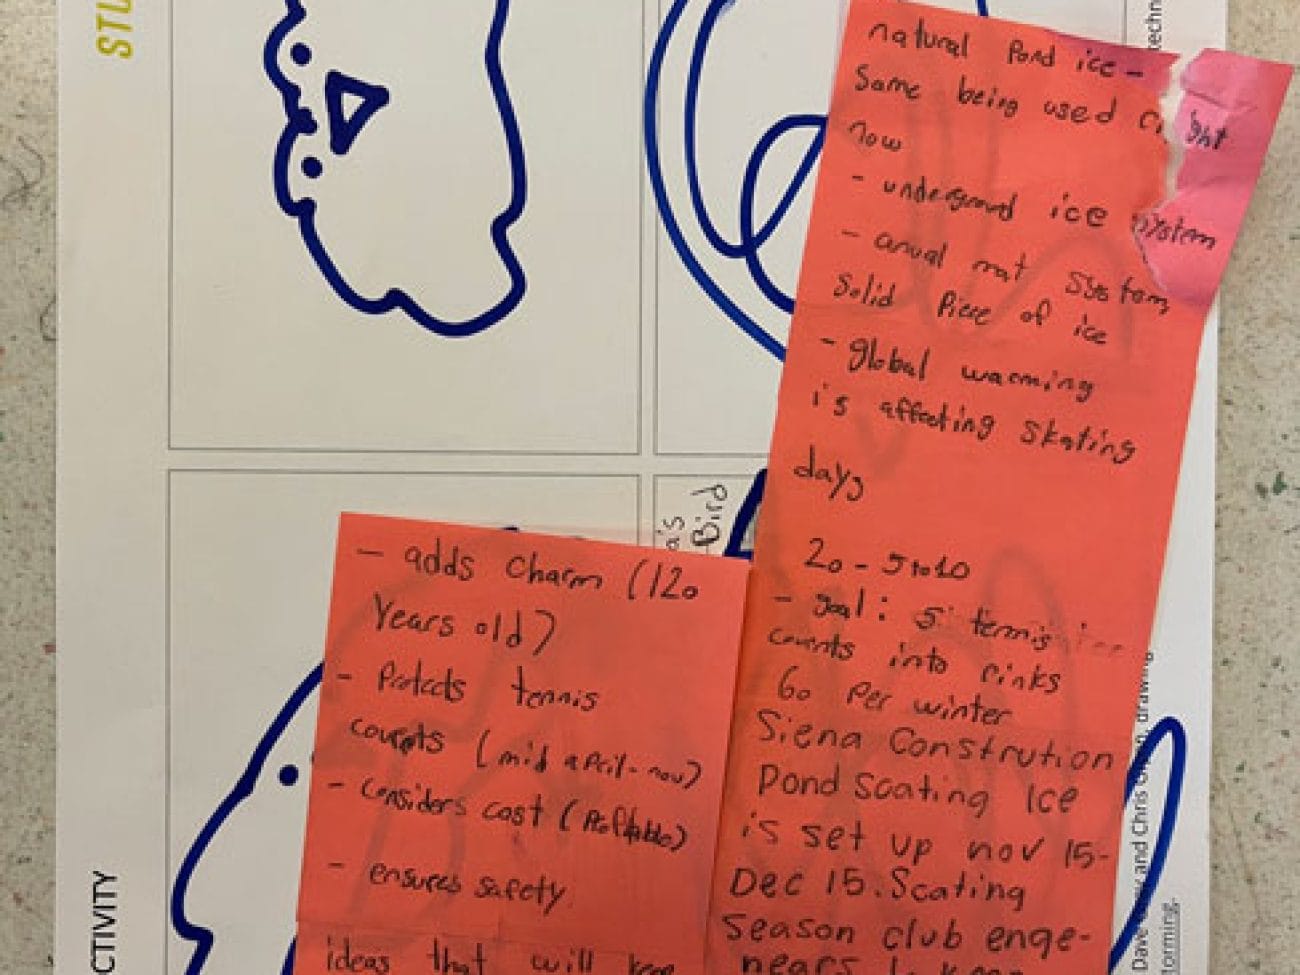 STU
natural Pond ice -
Same being used ght
now
- underground ice system
- anual mat System,
Solid Piece of ice
- global warming
is affecting Skating
days
20 - 5 to 10
- goal: 5 tennis
courts into rinks
60 Per winter
Siena Constrution
Pond Scating Ice
is set up nov 15-
Dec 15. Scating
season club enge-
nears
- adds charm (120
Years old)
- Protects tennis
courts (mid april - nov)
- considers cost (
- ensures safety
ideas that will keep
Bird
CTIVITY
techn
drawing
Dave and Chris
torming.